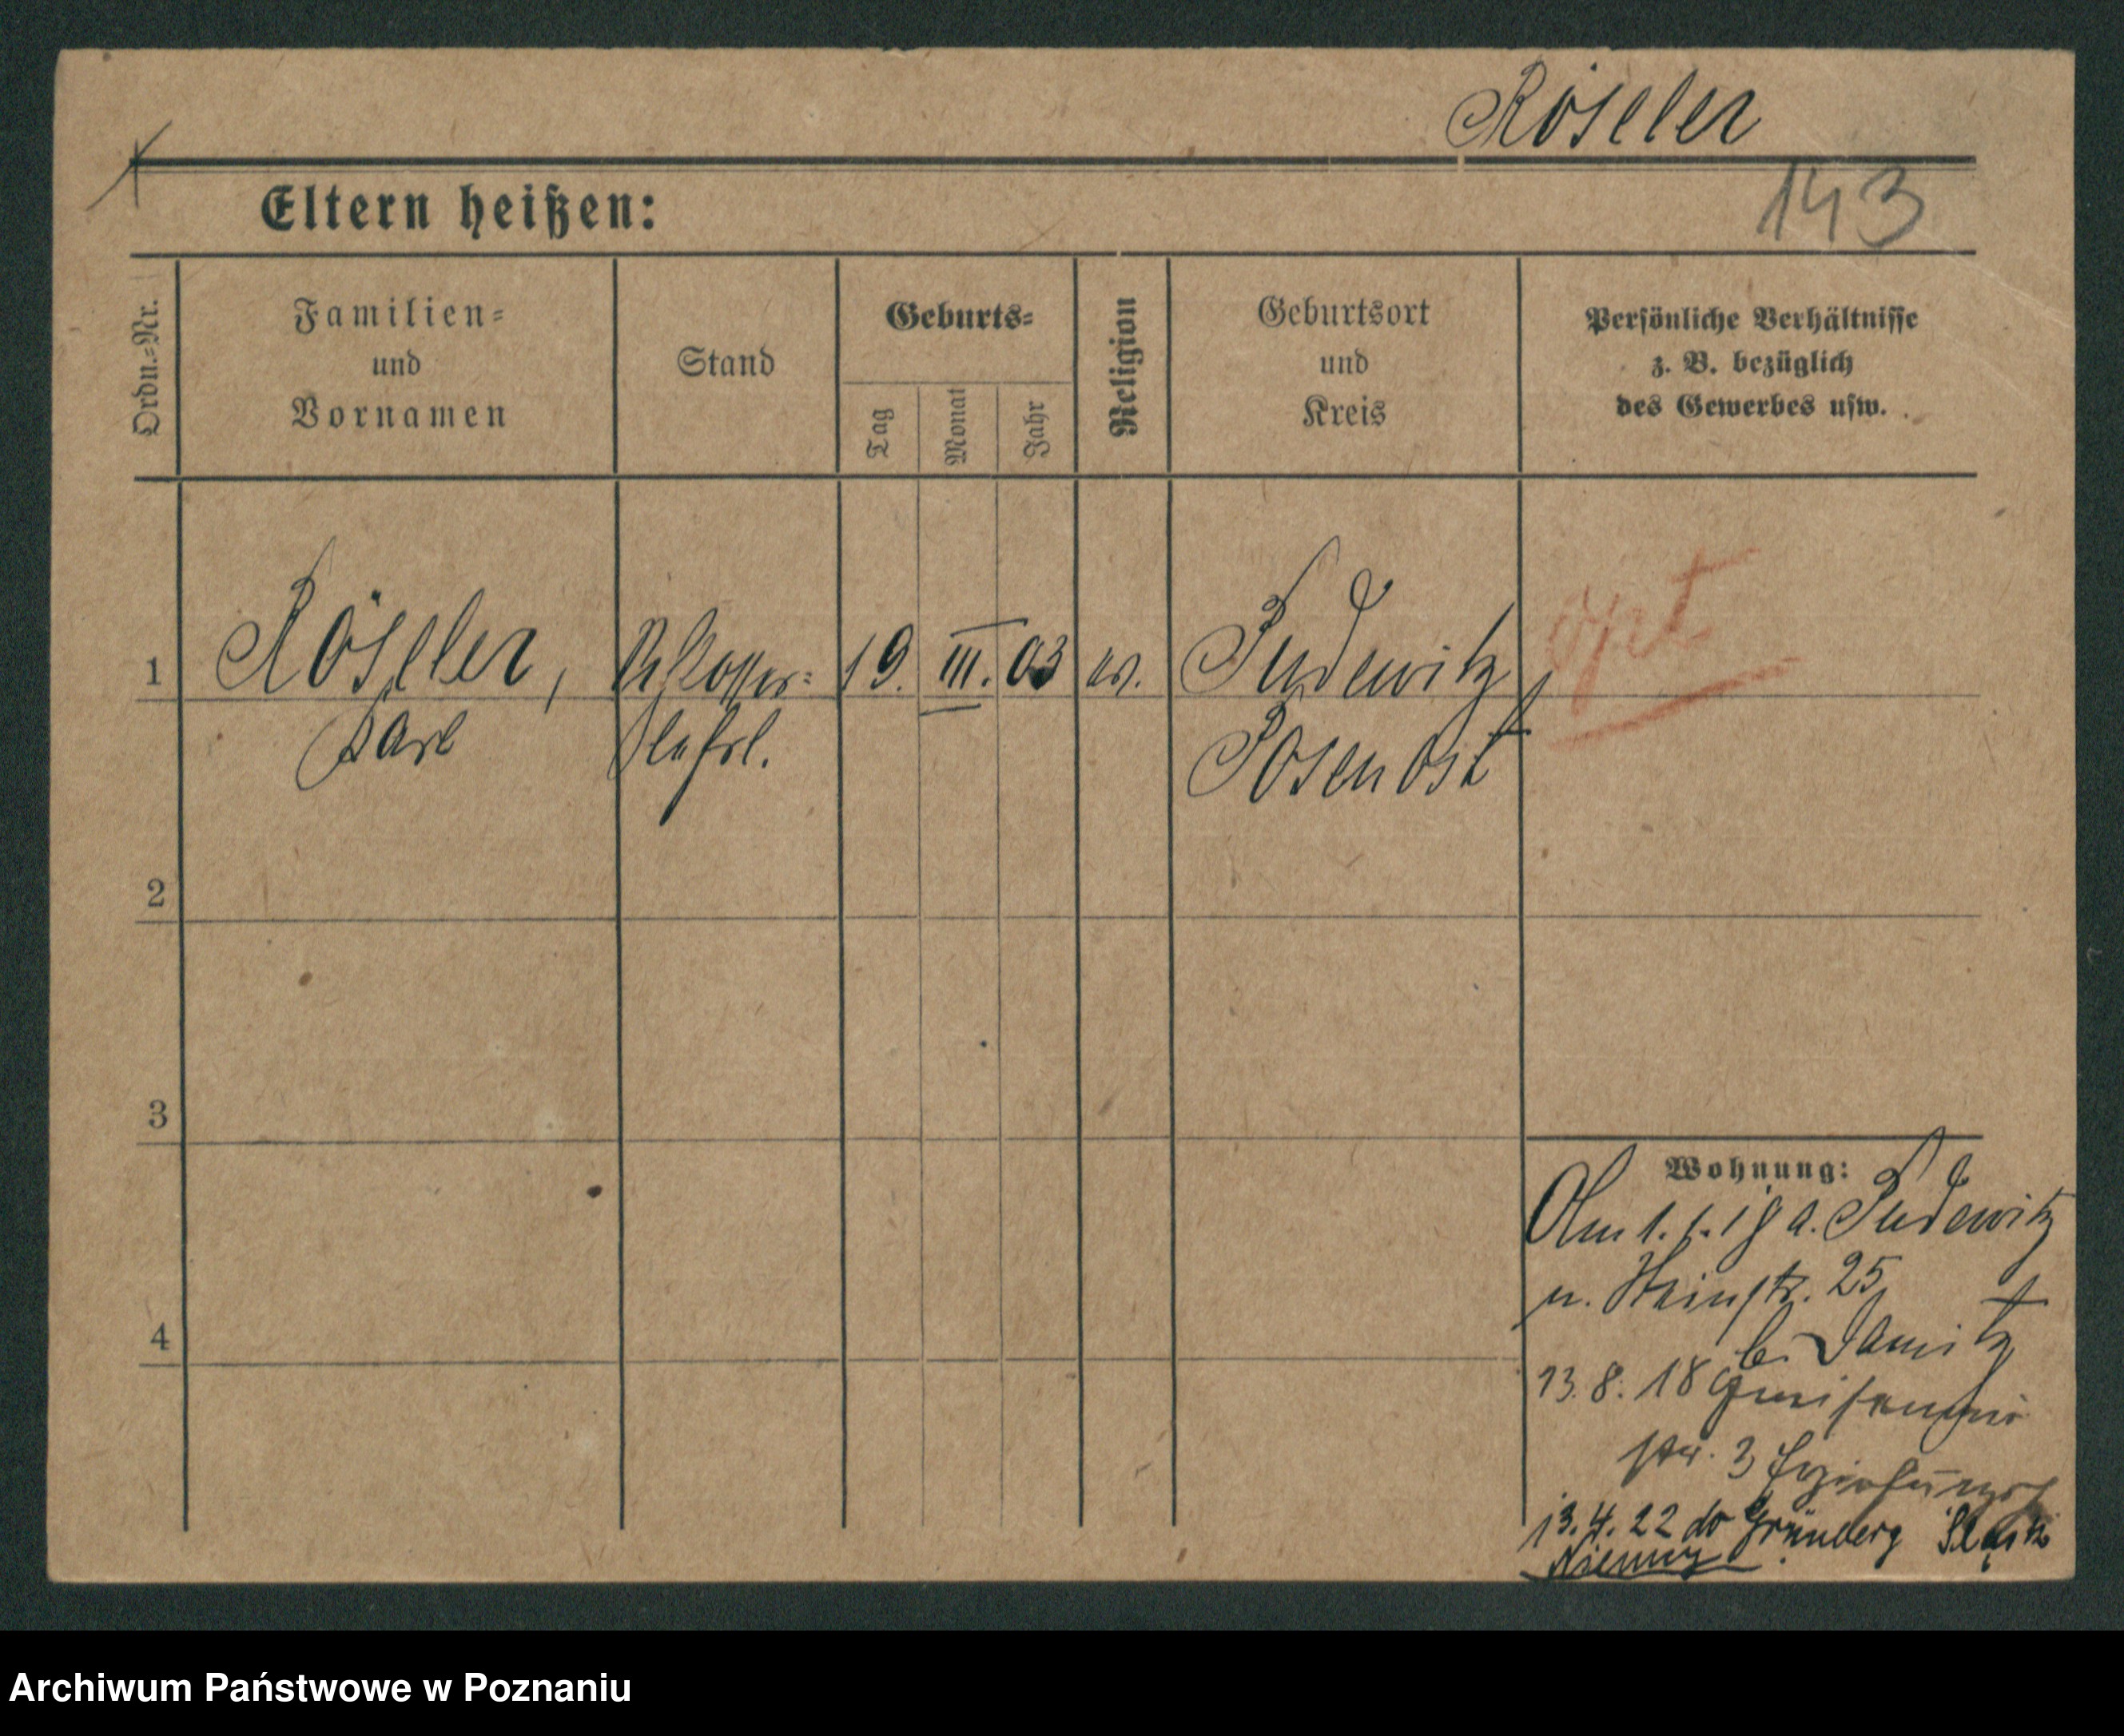 Röseler
143
Eltern heißen:
Ordn.-Nr.
Familien-
und
Vornamen
Stand
Geburts-
Tag
Monat
Jahr
Religion
Geburtsort
und
Kreis
Persönliche Verhältnisse
z. B. bezüglich
des Gewerbes usw.
1
Röseler,
Karl
Schlosser-
lehrl.
19. III. 03
ev.
Pudewitz
Posen Ost
opt
2
3
4
Wohnung:
Am 1. 1. 18 a. Pudewitz
n. 25
b.
13. 8. 18 Gneisenau
str. 3
13. 4. 22 do Grünberg Śląsk
Niemcy
Archiwum Państwowe w Poznaniu